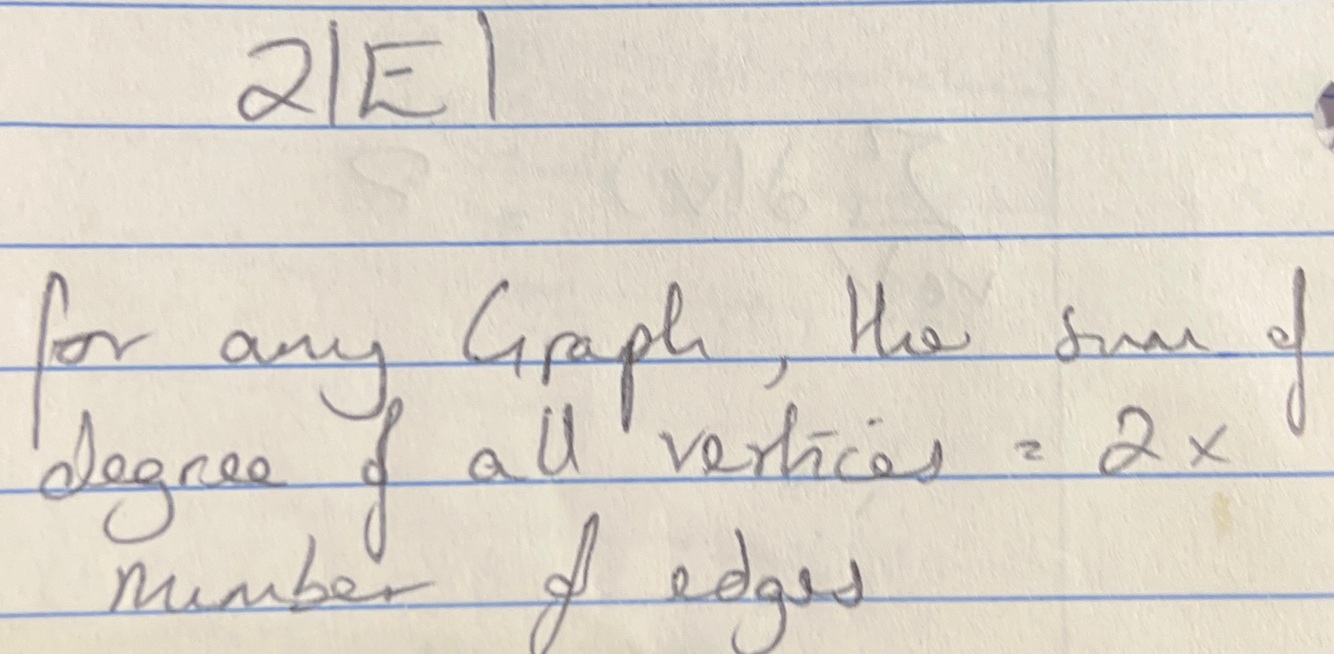 2|E|
for any Graph, the sum of
degree of all vertices = 2x
number of edges